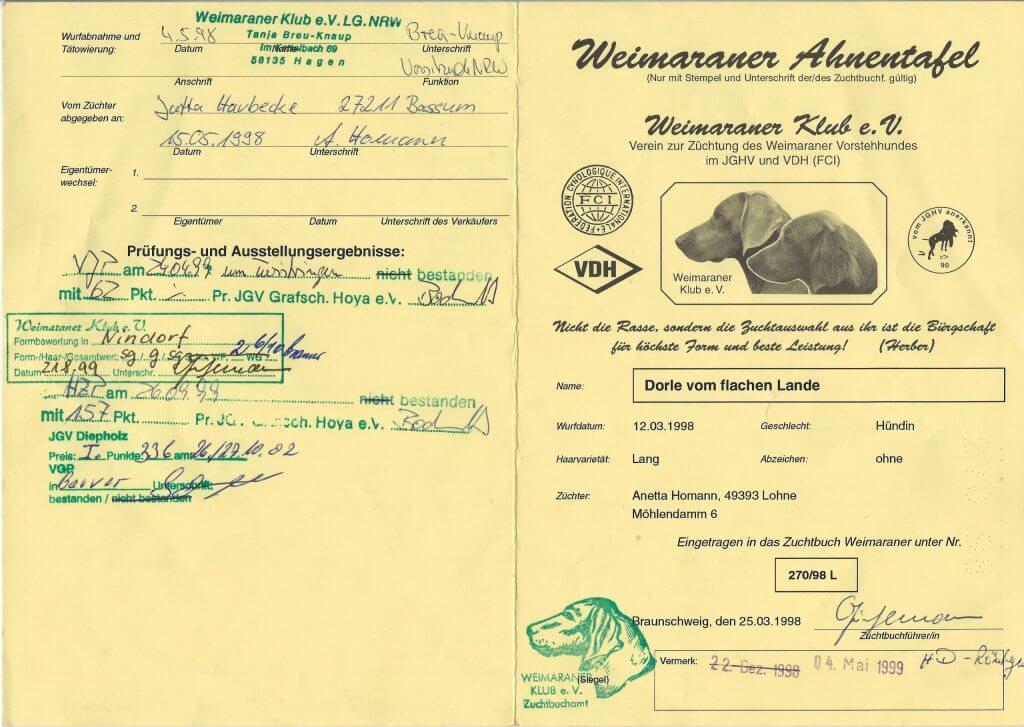 Wurfabnahme und
Tätowierung:
4.5.98
Datum
Weimaraner Klub e.V. LG. NRW
Tanja Breu-Knaup
Im Kettelbach 69
58135 Hagen
Name
Breu-Knaup
Unterschrift
Anschrift
Funktion
Vom Züchter
abgegeben an:
Jutta Harbecke 27211 Bassum
15.05.1998 A. Homann
Datum Unterschrift
Eigentümer-
wechsel:
1.
2.
Eigentümer Datum Unterschrift des Verkäufers
Prüfungs- und Ausstellungsergebnisse:
VJP am 24.04.99 nicht bestanden
mit 62 Pkt. Pr. JGV Grafsch. Hoya e.V.
Weimaraner Klub e.V.
Formbewertung in Nindorf
Form-/Haar-/Gesamtwert: sg g sg WG
Datum 21.8.99 Unterschr.
HZP am 26.09.99 nicht bestanden
mit 157 Pkt. Pr. JGV Grafsch. Hoya e.V.
JGV Diepholz
Preis: I. Punkte: 336 am 26./27.10.02
VGP
in Barver Unterschrift:
bestanden / nicht bestanden
Weimaraner Ahnentafel
(Nur mit Stempel und Unterschrift der/des Zuchtbuchf. gültig)
Weimaraner Klub e.V.
Verein zur Züchtung des Weimaraner Vorstehhundes
im JGHV und VDH (FCI)
FEDERATION CYNOLOGIQUE INTERNATIONALE
FCI
VDH
Weimaraner
Klub e. V.
vom JGHV anerkannt
90
Nicht die Rasse, sondern die Zuchtauswahl aus ihr ist die Bürgschaft
für höchste Form und beste Leistung! (Herber)
Name: Dorle vom flachen Lande
Wurfdatum: 12.03.1998 Geschlecht: Hündin
Haarvarietät: Lang Abzeichen: ohne
Züchter: Anetta Homann, 49393 Lohne
Möhlendamm 6
Eingetragen in das Zuchtbuch Weimaraner unter Nr.
270/98 L
Braunschweig, den 25.03.1998
Zuchtbuchführer/in
WEIMARANER
KLUB e. V.
Zuchtbuchamt
(Siegel)
Vermerk: 22. Dez. 1998 04. Mai 1999 HD -